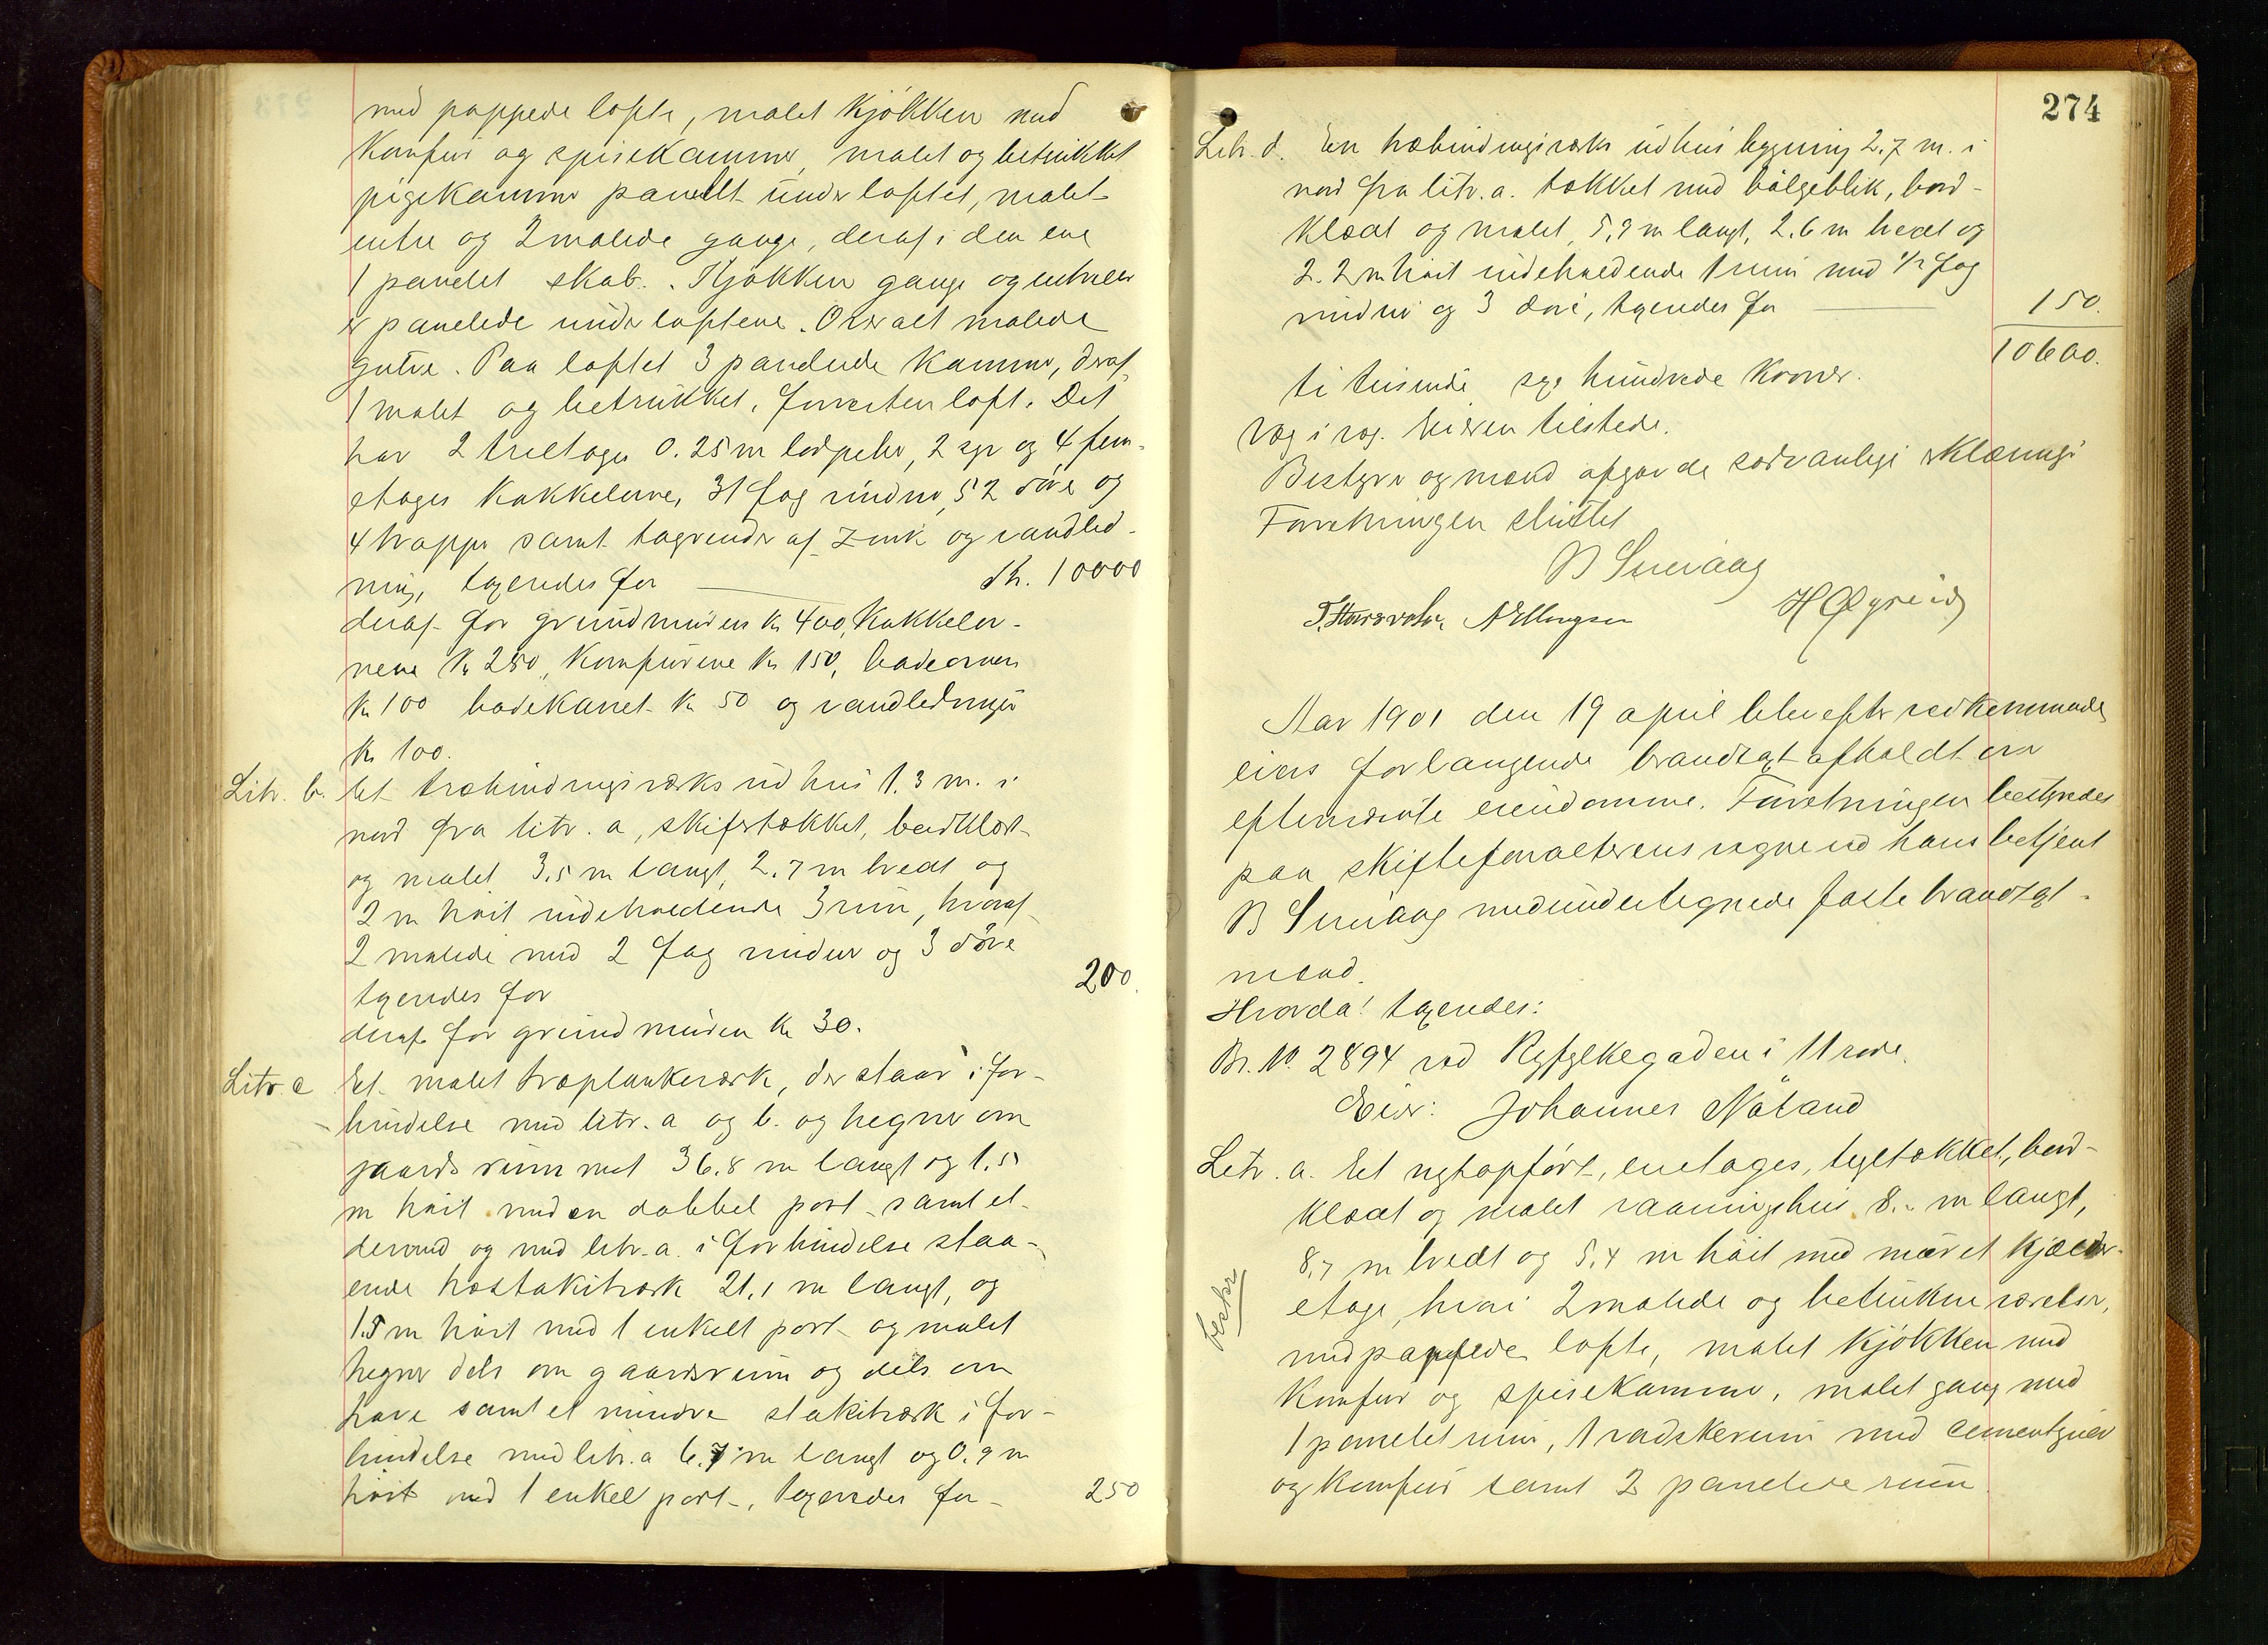 med pappede lofte, malet Kjøkken med
Komfur og spisekammer, malet og betrukket
pigekammer panelt under loftet, malet
entre og 2 malede gange, deraf i den ene
1 panelet skab. Kjøkken gange og entreer
er panelede under loftene. Overalt malede
gulve. Paa loftet 3 panelede kammer, deraf
1 malet og betrukket, forresten loft. Det
har 2 treetages 0.25 m lodpeber, 2 syv og 4 fem-
etages Kakkelovne, 31 fag vinduer, 52 døre og
4 trapper samt tagrender af Zink og vandled-
ning, taxeredes for Kr. 10000
deraf for grundmuren Kr 400, Kakkelov-
nene Kr 250, Komfurene Kr 150, badeovnen
Kr 100 badekarret Kr 50 og vandledninger
Kr 100.
Litr. b. Et træbindingsværks udhus 1.3 m. i
nord fra litr. a, skifertækket, bordklædt
og malet 3.5 m langt, 2.7 m bredt og
2 m høit indeholdende 3 rum, hvoraf
2 malede med 2 fag vinduer og 3 døre
taxeredes for 200.
deraf for grundmuren Kr 30.
Litr. c Et malet træplankeværk, der staar i for-
bindelse med litr. a og b. og hegner om
gaardsrummet 36.8 m langt og 1.5
m høit med en dobbel port samt et
derved og med litr. a. i forbindelse staa-
ende træstakitværk 21.1 m langt, og
1.5 m høit med 1 enkelt port og malet
hegner dels om gaardsrum og dels om
have samt et mindre stakitværk i for-
bindelse med litr. a 6.7 m langt og 0.9 m
høit med 1 enkel port, taxeredes for 250
274
Litr. d. En træbindingsværks udhusbygning 2.7 m. i
nord fra litr. a. tækket med bølgeblik, bord-
klædt og malet, 5.9 m langt, 2.6 m bredt og
2.2 m høit indeholdende 1 rum med 1/2 fag
vindu og 3 døre, taxeredes for 150.
10600.
ti tusinde sex hundrede Kroner.
Væg i væg. Eieren tilstede.
Bestyrer og mænd afgav de sædvanlige erklæringer
Forretningen sluttet
B Sunaag
A Ellingsen H Øgreid
Aar 1901 den 19 april blev efter vedkommende
eiers forlangende brandtaxt afholdt over
efternævnte eiendomme. Forretningen bestyredes
paa skifteforvalterens vegne ved hans betjent
B Sunaag med undertegnede faste brandtaxt-
mænd.
Hvorda! taxeredes:
Br. No. 2894 ved Ryfylkegaden i 11 rode.
Eier: Johannes Nåland
Litr. a. Et nyt opført, enetages, tegltækket, bord-
klædt og malet vaaningshus, 8.- m langt,
8.7 m bredt og 5.4 m høit med muret Kjælder-
etage, hvori 2 malede og betrukne værelser,
med pappede lofte, malet Kjøkken med
Komfur og spisekammer, malet gang med
1 panelet rum, 1 vadskerum med cementgulv
og Komfur samt 2 panelede rum